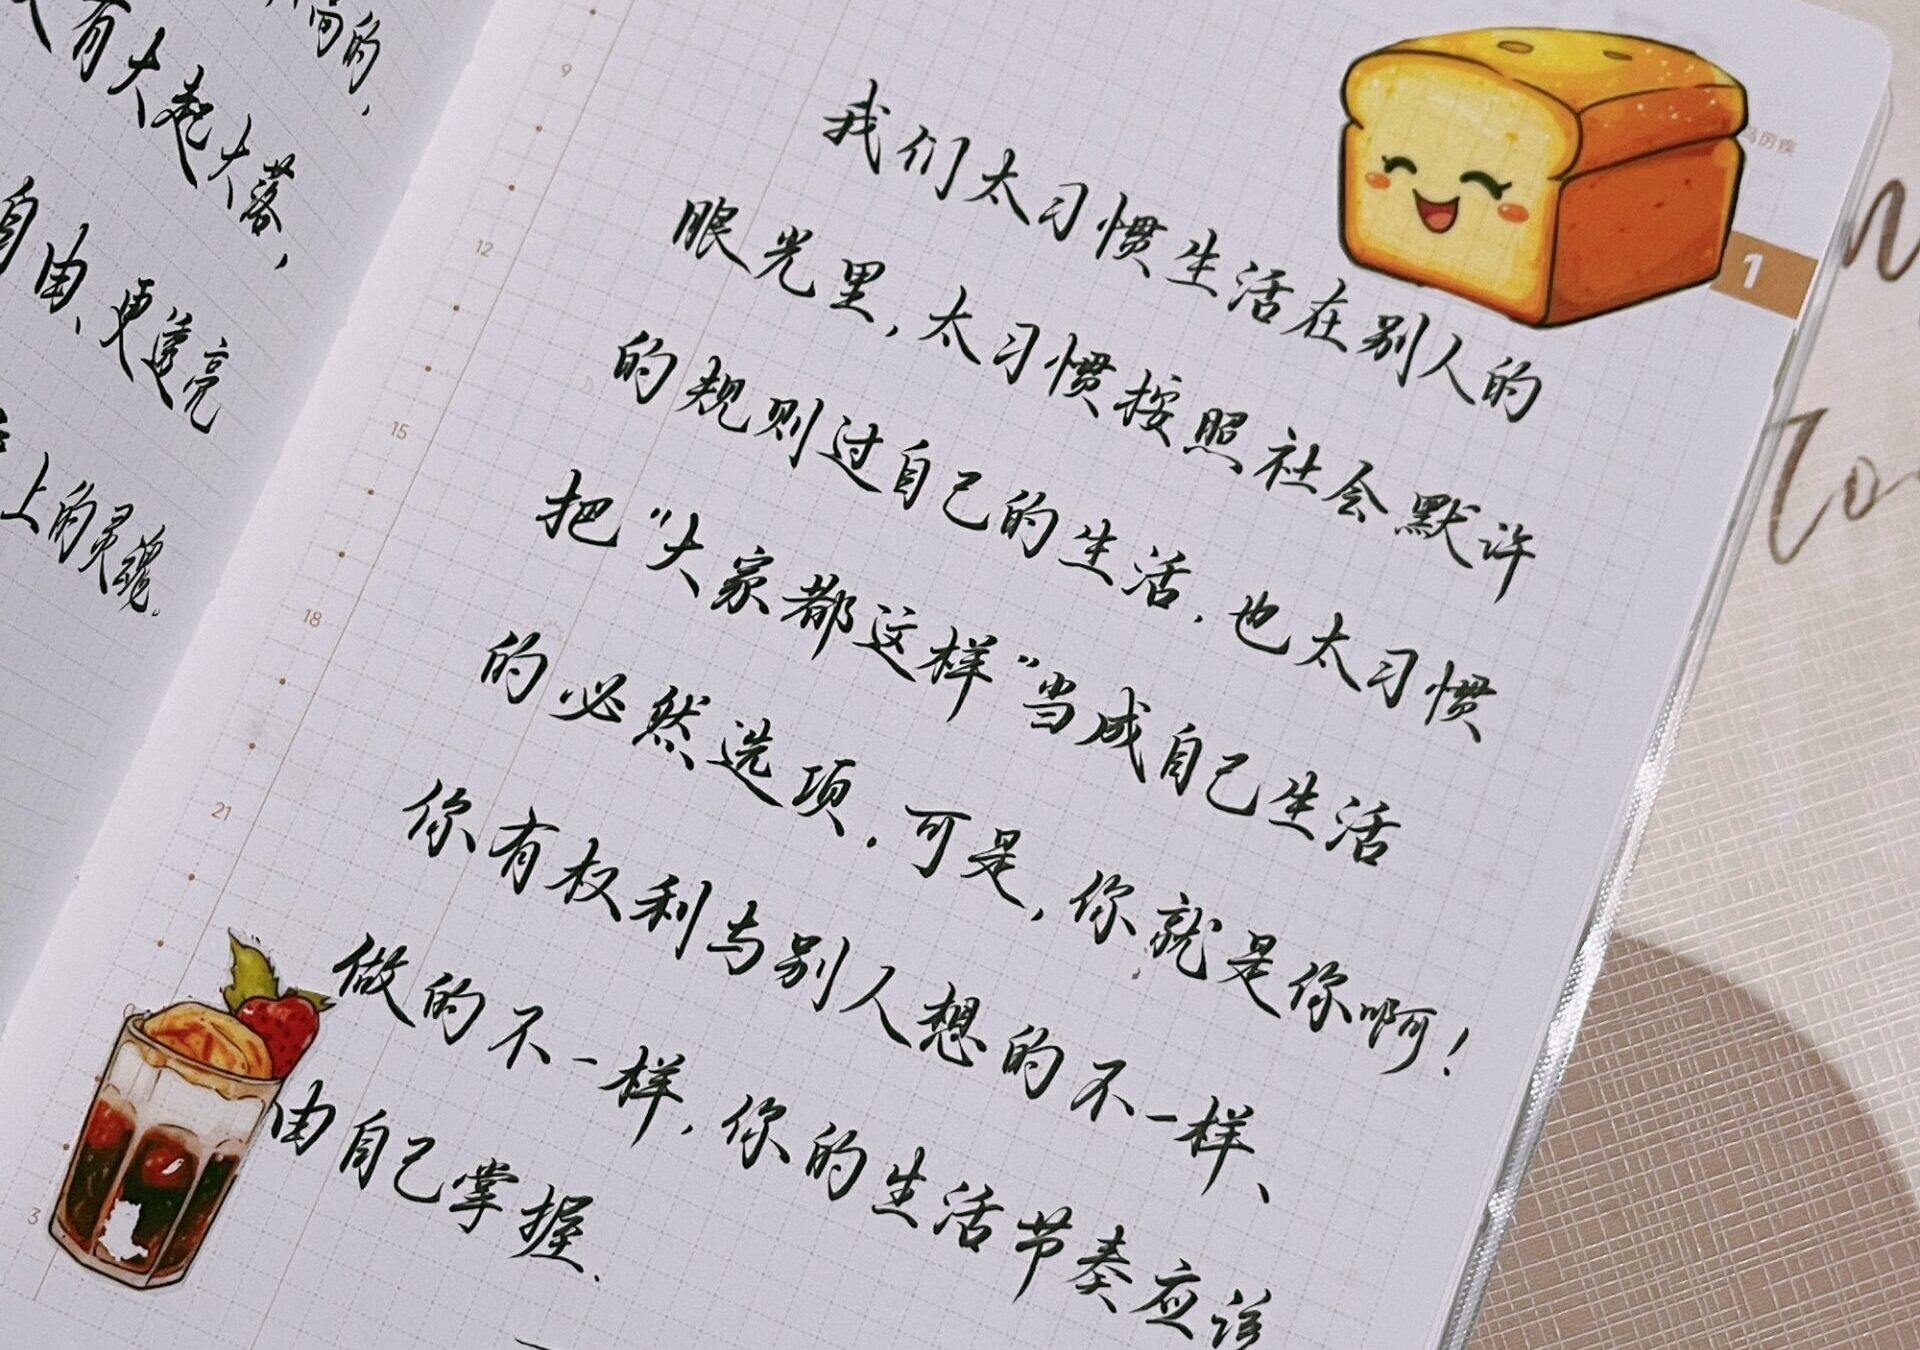 的,
有大起大落,
自由、更透亮
上的灵魂.
9
12
15
18
21
3
1
我们太习惯生活在别人的
眼光里,太习惯按照社会默许
的规则过自己的生活.也太习惯
把"大家都这样"当成自己生活
的必然选项.可是,你就是你啊!
你有权利与别人想的不一样、
做的不一样,你的生活节奏应该
由自己掌握.